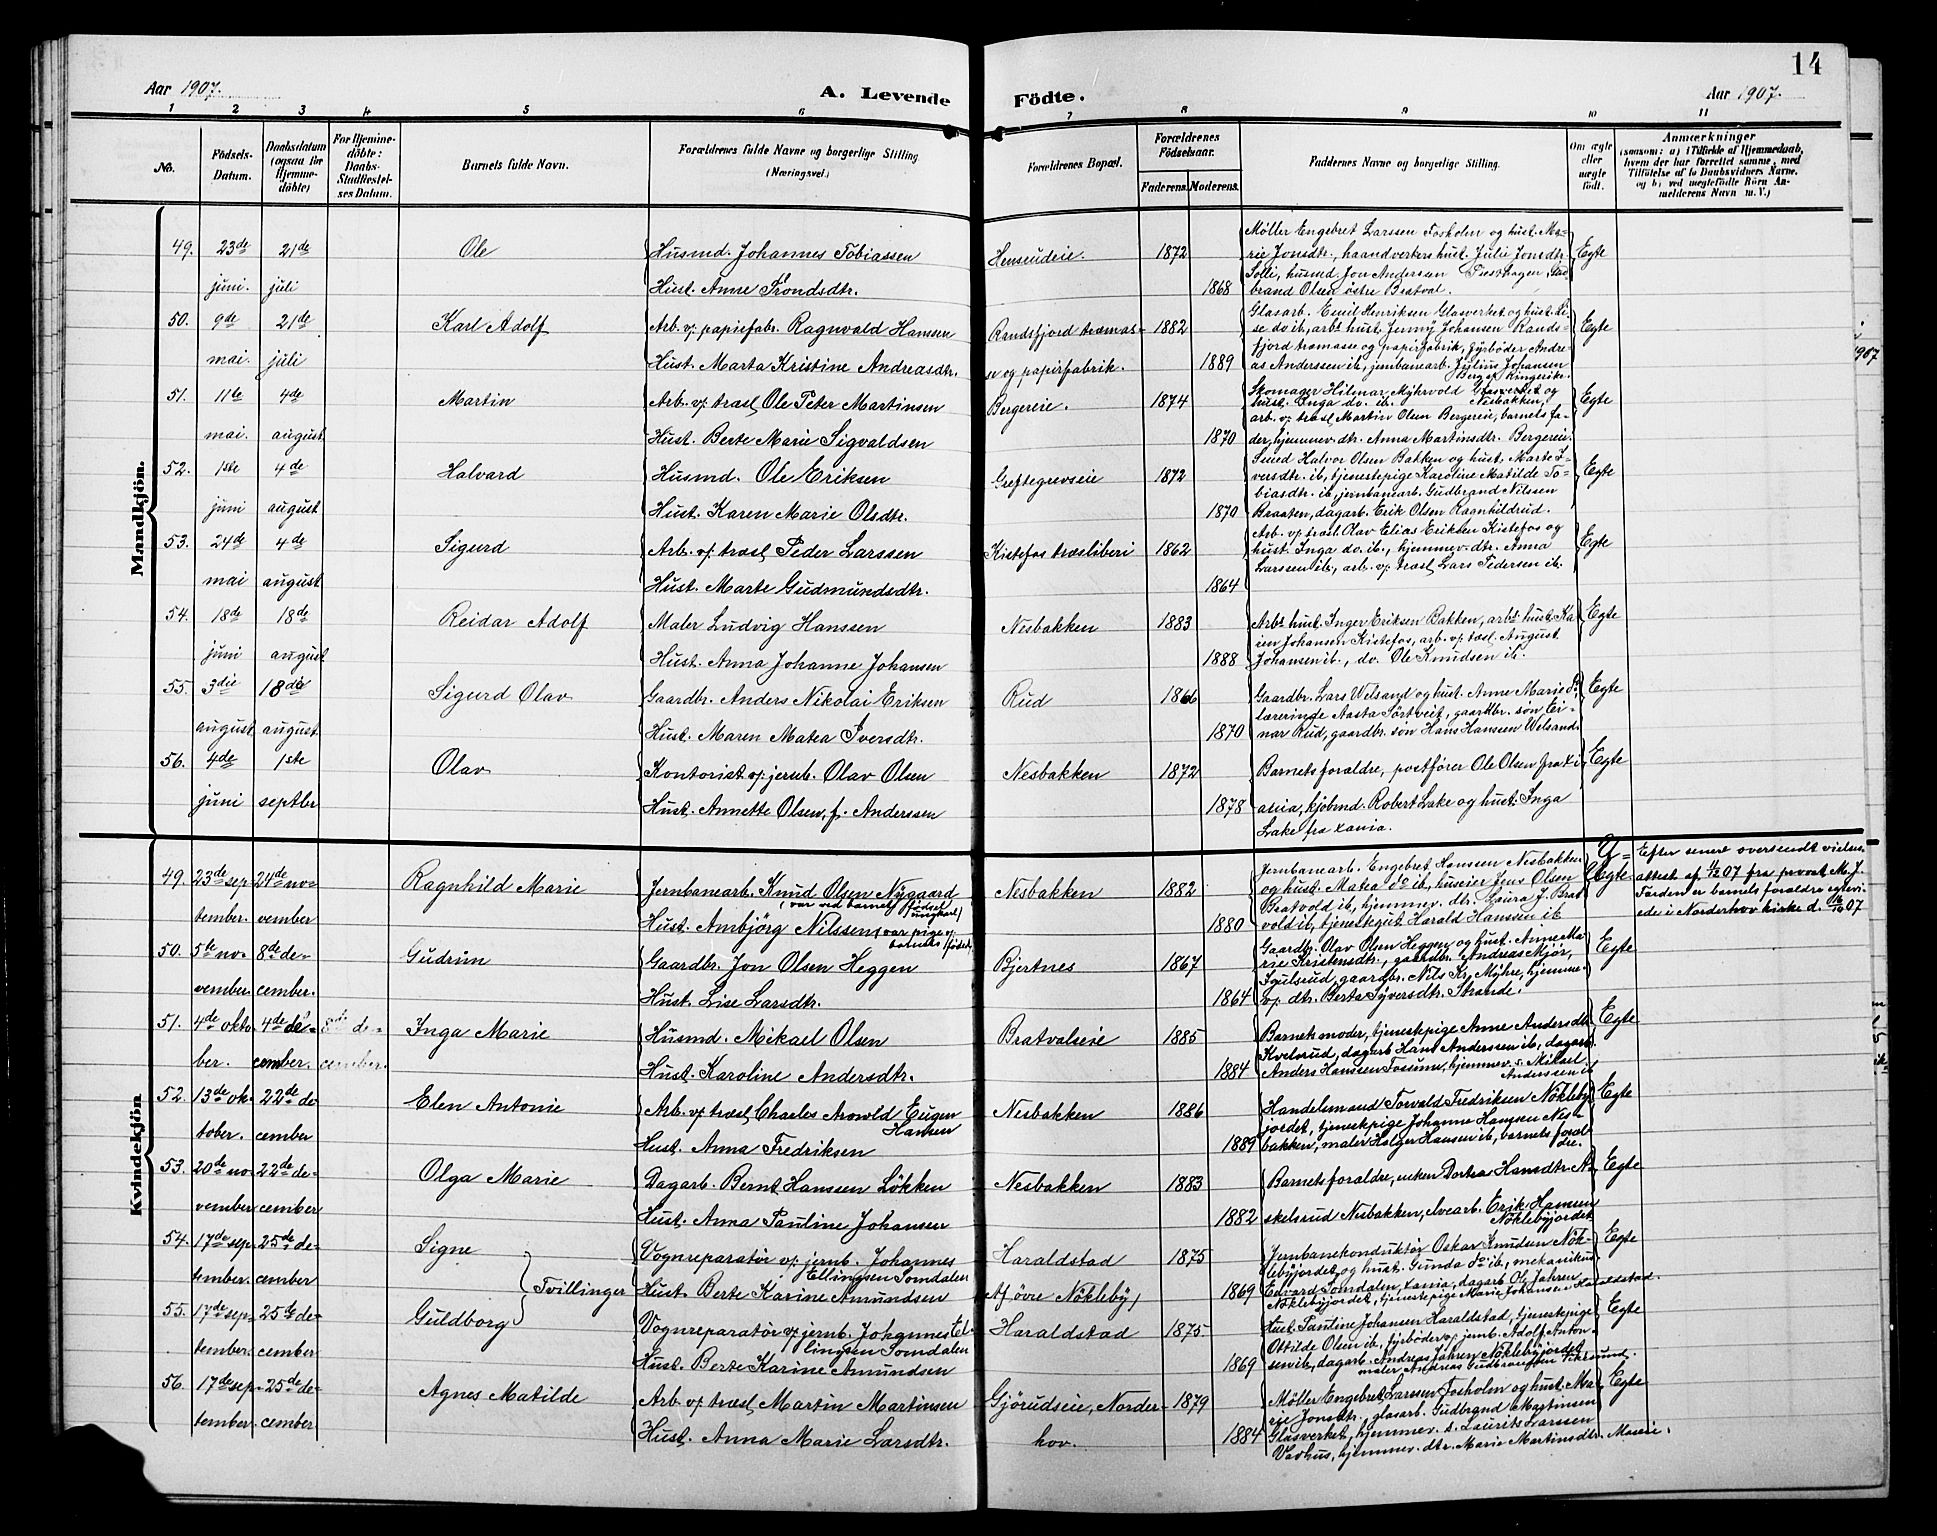 14
Aar 1907.
A. Levende Födte.
Aar 1907.
1 2 3 4 5 6 7 8 9 10 11
No.
Födsels-Datum.
Daabsdatum (ogsaa for Hjemmedöbte)
For Hjemmedöbte: Daabs-Stadfæstelses Datum.
Barnets fulde Navn.
Forældrenes fulde Navne og borgerlige Stilling. (Næringsvei.)
Forældrenes Bopæl.
Forældrenes Födselsaar.
Faderens. Moderens.
Faddernes Navne og borgerlige Stilling.
Om ægte eller uægte födt.
Anmærkninger
(saasom: a) i Tilfælde af Hjemmedaab, hvem der har forrettet samme, med Tilföielse af to Daabsvidners Navne, og b) ved uægtefödte Börn Anmelderens Navn m. V.)
Mandkjön.
49. 23de juni. 21de juli Ole
Husmd. Johannes Tobiassen
Hust. Anne Trondsdtr.
Henseudeie. 1872 1868
Møller Engebret Larssen Fosholm og hust. Ma-
rie Jonsdtr., haandverkers hust. Julie Jonsdtr.
Solli, husmd. Jon Andersen
brand Olsen østre Bratval.
Egte
50. 9de mai. 21de juli Karl Adolf
Arb. v. papirfabr. Ragnvald Hansen
Hust. Marta Kristine Andreasdtr.
Randsfjord træmas-
se og papirfabrik. 1882 1889
Glasarb. Emil Henriksen Glasverket og hust. Li-
se do ib., arbs hust. Jenny Johansen Rands-
fjord træmasse og papirfabrik, fyrbøder Andre-
as Anderssen ib., jernbanearb. Julius Johansen
Berg af Ringerike.
Egte
51. 11te mai. 4de august Martin
Arb. v. træsl. Ole Peter Martinsen
Hust. Berte Marie Sigvaldsen
Bergereie. 1874 1870
Skomager Hilmar Myhrvold Glasverket og
hust. Inga do. ib. Nesbakken,
arb. v. træsl. Martin Olsen Bergereie, barnets fa-
der, hjemmev. dtr. Anna Martinsdtr. Bergereie.
Egte
52. 1ste juni 4de august Halvard
Husmd. Ole Eriksen
Hust. Karen Marie Olsdtr.
Greftegrevseie 1872 1870
Smed Halvor Olsen Bakken og hust. Marte I-
versdtr. ib., tjenestepige Karoline Matilde To-
biasdtr. ib., jernbanearb. Gudbrand Nilssen
Braaten, dagarb. Erik Olsen Ragnhildrud.
Egte
53. 24de mai 4de august Sigurd
Arb. v. træsl. Peder Larssen
Hust. Marte Gudmundsdtr.
Kistefos træsliberi 1862 1864
Arb. v. træsl. Olav Elias Eriksen Kistefos og
hust. Inga do. ib., hjemmev. dtr. Anna
Larssen ib., arb. v. træsl. Lars Pedersen ib.
Egte
54. 18de juni 18de august Reidar Adolf
Maler Ludvig Hanssen
Hust. Anna Johanne Johansen
Nesbakken 1883 1888
Arbs hust. Inger Eriksen Bakken, arbs hust. Ka-
ren Johansen Kistefos, arb. v. træsl. August
Johansen ib., do. Ole Knudsen ib.
Egte
55. 3die august 18de august Sigurd Olav
Gaardbr. Anders Nikolai Eriksen
Hust. Maren Matea Iversdtr.
Rud 1866 1870
Gaardbr. Lars Welsand og hust. Anne Marie do,
lærerinde Aasta Sørtveit, gaardbr. søn Ei-
nar Rud, gaardbr. søn Hans Hansen Welsand.
Egte
56. 4de juni 1ste septbr Olav
Kontorist v. jernb. Olav Olsen
Hust. Annette Olsen, f. Anderssen
Nesbakken 1872 1878
Barnets foraldre, postfører Ole Olsen fra Xi-
ania, kjøbmd. Robert Lake og hust. Inga
Lake fra Xania.
Egte
Kvindekjön
49. 23de september. 24de november Ragnhild Marie
Jernbanearb. Knud Olsen Nygaard
(var ved barnets fødsel ungkarl)
Hust. Ambjörg Nilssen (var pige v. barnets fødsel)
Nesbakken 1882 1880
Jernbanearb. Engebret Hanssen Nesbakken
og hust. Matea do ib., huseier Jens Olsen
Bratvold ib., hjemmev. dtr. Laura J. Brat-
vold ib., tjenestegut Harald Hanssen ib.
U-egte
Efter senere oversendt vielses-
attest af 1/12 07 fra provst M. J.
Færden er barnets foraldre egtevi-
ede i Norderhov kirke d. 07
50. 5te november. 8de december. Gudrun
Gaardbr. Jon Olsen Heggen
Hust. Lise Larsdtr.
Bjertnes 1867 1864
Gaardbr. Olav Olsen Heggen og hust. Anne Ma-
rie Kristensdtr., gaardbr. Andreas Mjør,
Igulsrud, gaardbr. Nils Kr. Myhre, hjemme-
v. dtr. Berta Syversdtr. Strande.
Egte
51. 4de oktober. 4de december. 8de december. Inga Marie
Husmd. Mikael Olsen
Hust. Karoline Andersdtr.
Bratvalseie 1885 1884
Barnets moder, tjenestepige Anne Andersdtr.
Kvelsrud, dagarb. Hans Anderssen ib., dagarb.
Anders Hanssen Fossum, hjemmev. s. Mikael
Anderssen ib.
Egte
52. 13de oktober. 22de december Elen Antonie
Arb. v. træsl. Charles Arnold Eugen
Hansen
Hust. Anna Fredriksen
Nesbakken 1886 1889
Handelsmand Torvald Fredriksen Nökleby-
jordet, tjenestepige Johanne Hansen Nes-
bakken, maler Holger Hansen ib., barnets foræl-
dre.
Egte
53. 20de november 22de december Olga Marie
Dagarb. Bernt Hanssen Løkken
Hust. Anna Pauline Johansen
Nesbakken 1883 1882
Barnets foraldre, enken Dortea Hansdtr. A-
skelsrud Nesbakken, elvearb. Erik Hansen
Nöklebyjordet
Egte
54. 17de september. 25de december Signe
Tvillinger
Vognreparatør v. jernb. Johannes
Ellingsen Somdalen
Hust. Berte Karine Amundsen
Haraldstad
Af øvre Nökleby) 1875 1869
Jernbanekonduktør Oskar Knudsen Nök-
lebyjordet og hust. Gunda do ib., mekanikus
Edvard Somdalen, Xania, dagarb. O. Jahren
Nöklebyjordet, tjenestepige Marie Johansen Haraldstad.
Egte
55. 17de september. 25de december Guldborg
Vognreparatør v. jernb. Johannes El-
lingsen Somdalen
Hust. Berte Karine Amundsen
Haraldstad 1875 1869
Hust. Pauline Johansen Haraldstad, tjenestepige
Ottilde Olsen ib., fyrbøder v. jernb. Adolf Anton-
sen ib., dagarb. Andreas Jahren Nöklebyjordet
maler Andreas Gudbrandsen Viksund.
Egte
56. 17de september 25de december Agnes Matilde
Arb. v. træsl. Martin Martinsen
Hust. Anna Marie Larsdtr.
Gjörudseie, Norder-
hov. 1879 1884
Møller Engebret Larssen Fosholm og hust. Ma-
rie Jonsdtr., glasarb. Gudbrand Martinsen
Glasverket, hjemmev. s. Laurits Larssen
Vadhus, hjemmev. dtr. Marie Martinsdtr. Moseie.
Egte
1907